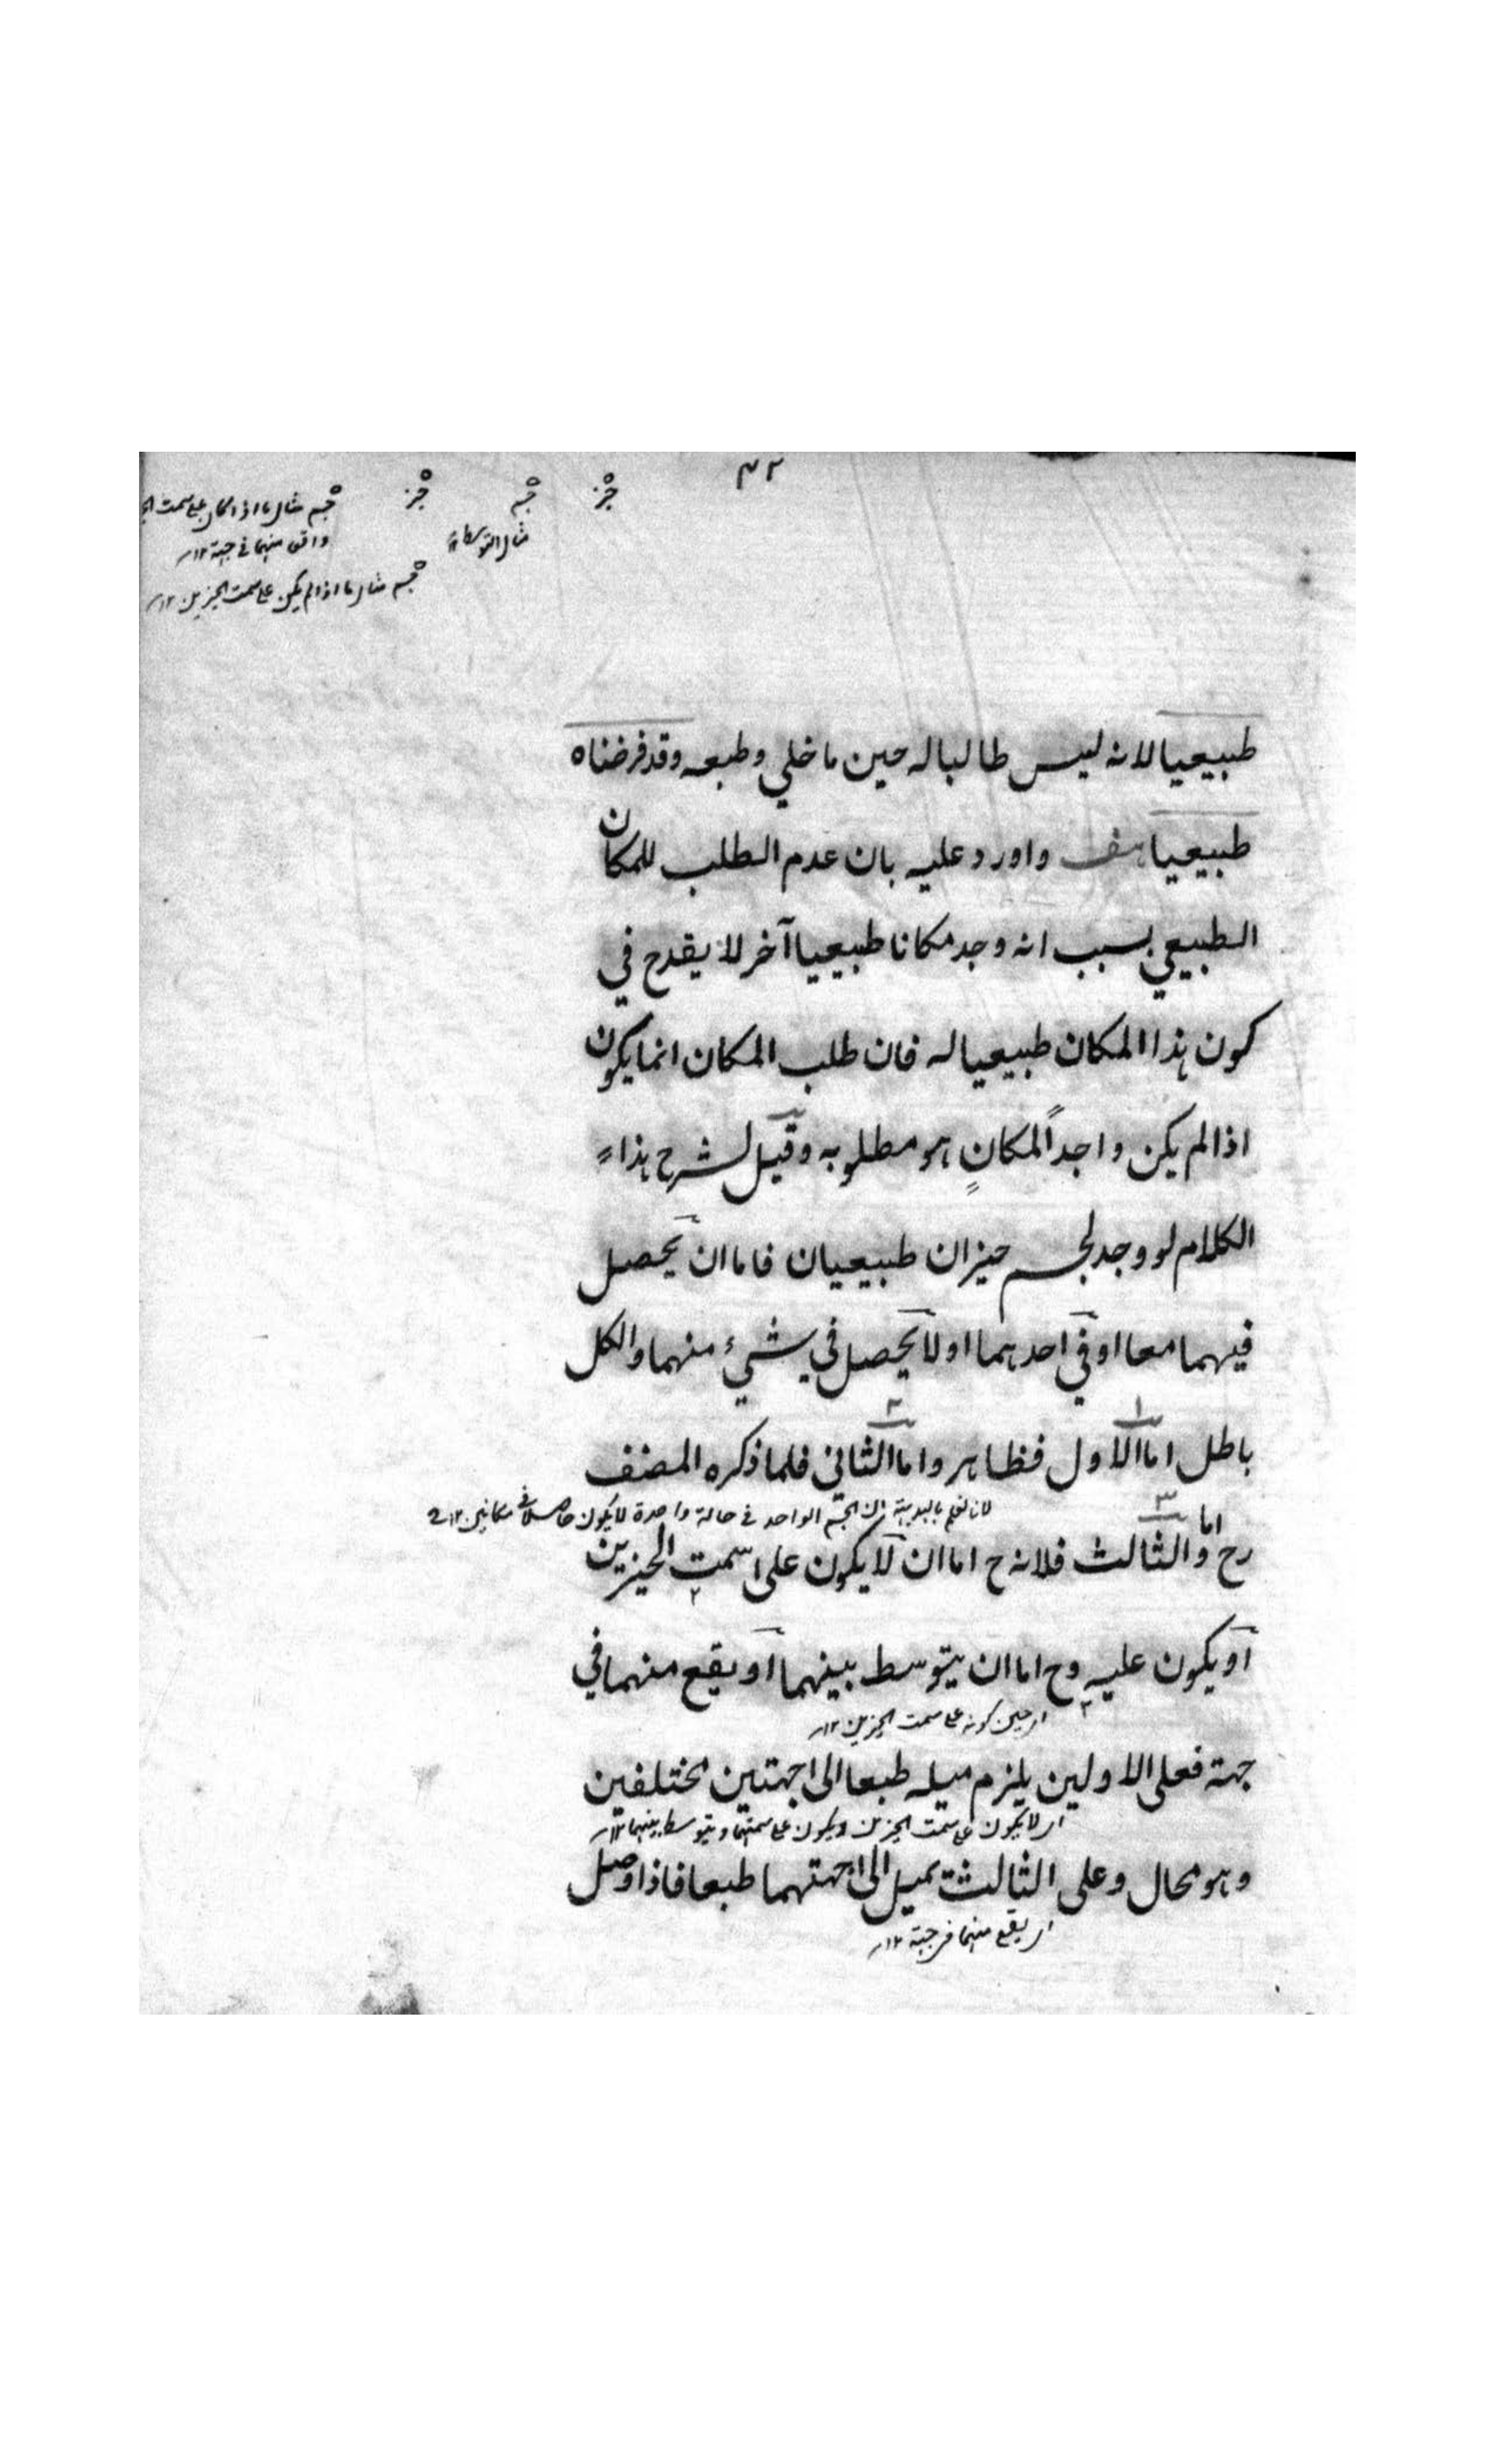 ٤٢
حيز
جسم
حيز
جسم مثال ما اذا كان على سمت
مثال التوسط ١٢
واقع منهما في جهة ١٢
جسم مثال ما اذا لم يكن على سمت الحيزين ١٢
طبيعيا لانه ليس طالبا له حين ما خلي وطبعه وقد فرضناه
طبيعيا هف واورد عليه بان عدم الطلب للمكان
الطبيعي بسبب انه وجد مكانا طبيعيا آخر لا يقدح في
كون هذا المكان طبيعيا له فان طلب المكان انما يكون
اذا لم يكن واجداً لمكانٍ هو مطلوبه وقيل لشرح هذا
الكلام لو وجد لجسم حيزان طبيعيان فاما ان يحصل
فيهما معا او في احدهما او لا يحصل في شيء منهما والكل
باطل اما الاول فظاهر واما الثاني فلما ذكره المصنف
لانا نعلم بالبديهة ان الجسم الواحد في حالة واحدة لا يكون حاصلا في مكانين ١٢
رح واما الثالث فلانه ح اما ان لا يكون على سمت الحيزين
او يكون عليه وح اما ان يتوسط بينهما او يقع منهما في
اي حين كونه على سمت الحيزين ١٢
جهة فعلى الاولين يلزم ميله طبعا الى جهتين مختلفين
اي لا يكون على سمت الحيزين ويكون على سمتهما ويتوسط بينهما ١٢
وهو محال وعلى الثالث يميل الى جهتهما طبعا فاذا وصل
اي يقع منهما في جهة ١٢